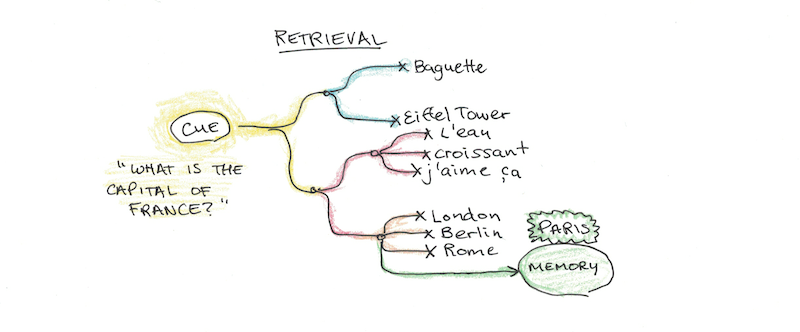 RETRIEVAL
Baguette
Eiffel Tower
CUE
L'eau
croissant
j'aime ça
"WHAT IS THE
CAPITAL OF
FRANCE?"
London
Berlin
Rome
PARIS
MEMORY